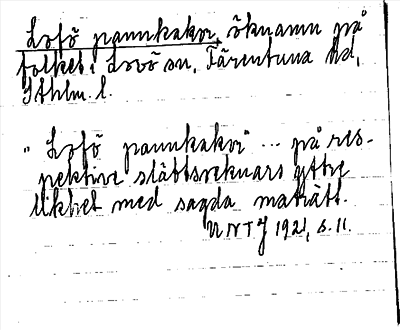 Lofö pannkakor, öknamn på
folket i Lovö sn, Färentuna hd,
Sthlm. l.
"Lofö pannkakor" ... på res-
pektive släktsreknars yttre
likhet med sagda maträtt.
UNT J 1921, s. 11.